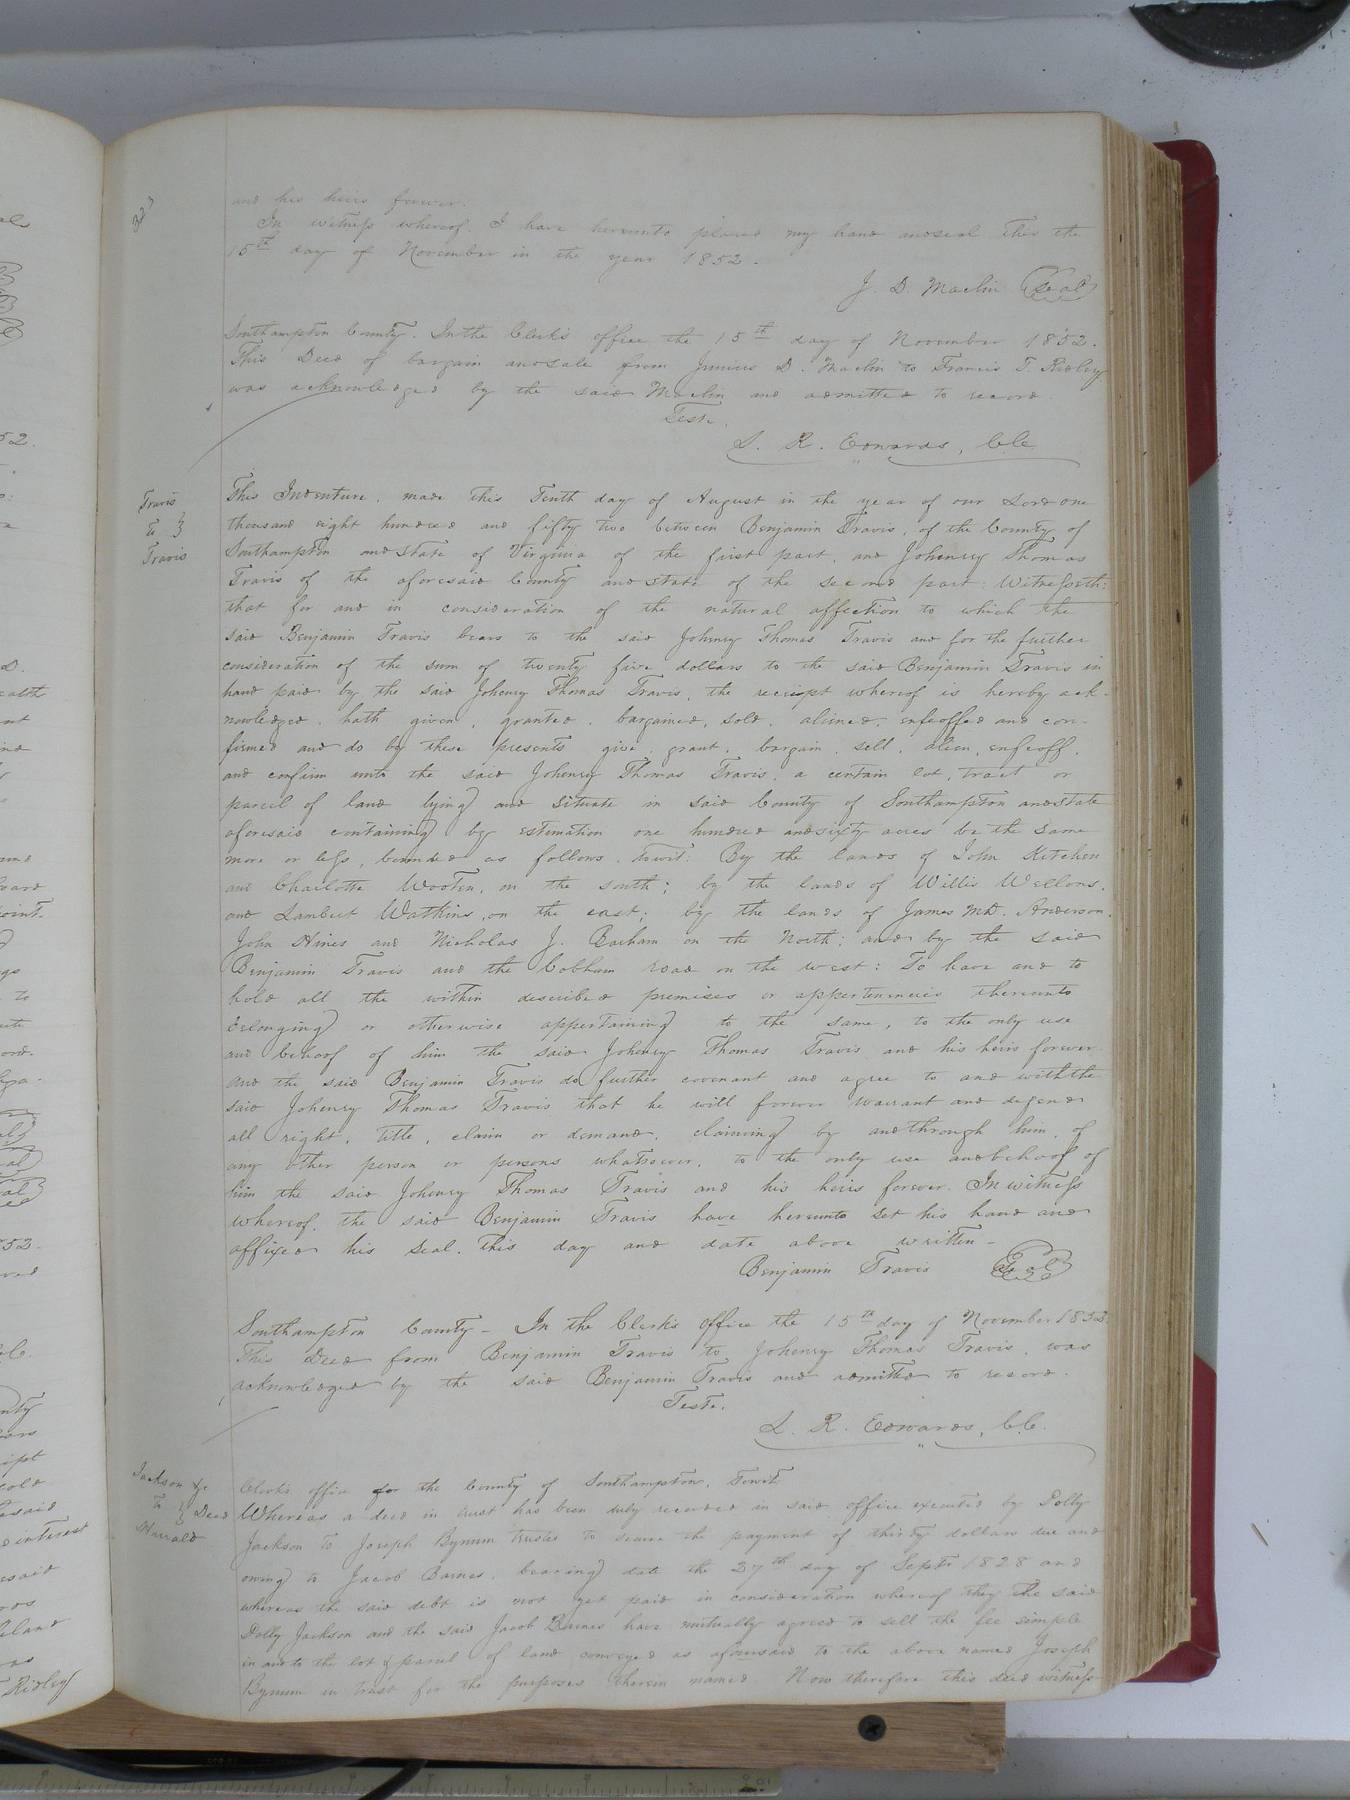 323
and his heirs forever.
In witness whereof. I have hereunto placed my hand and seal This the
15th day of November in the year 1852.
J. D. Maclin Seal
Southampton County. In the Clerk's office the 15th day of November 1852.
This Deed of bargain and sale from Junius D. Maclin to Francis T. Ridley
was acknowledged by the said Maclin and admitted to record.
Teste.
L. R. Edwards, C.C.
Travis
To
Travis
This Indenture, made this Tenth day of August in the year of our Lord one
thousand eight hundred and fifty two between Benjamin Travis, of the County of
Southampton and State of Virginia of the first part, and Johenry Thomas
Travis of the aforesaid County and state of the second part: Witnesseth:
that for and in consideration of the natural affection to which the
said Benjamin Travis bears to the said Johenry Thomas Travis and for the further
consideration of the sum of twenty five dollars to the said Benjamin Travis in
hand paid by the said Johenry Thomas Travis, the receipt whereof is hereby ack-
nowledged. hath given, granted, bargained, sold, aliened, enfeoffed and con-
firmed and do by these presents give, grant, bargain, sell, alien, enfeoff,
and confirm unto the said Johenry Thomas Travis, a certain lot, tract or
parcel of land lying and situate in said County of Southampton and state
aforesaid containing by estimation one hundred and sixty acres be the same
more or less, bounded as follows, towit: By the lands of John Kitchen
and Charlotte Wooten, on the south; by the lands of Willis Wellons,
and Lambert Watkins, on the east; by the lands of James Md. Anderson,
John Hines and Nicholas J. Barham on the North; and by the said
Benjamin Travis and the Cobham road on the west: To have and to
hold all the within described premises or appertenencies thereunto
belonging or otherwise appertaining to the same, to the only use
and behoof of him the said Johenry Thomas Travis and his heirs forever.
And the said Benjamin Travis do further covenant and agree to and with the
said Johenry Thomas Travis that he will forever warrant and defend
all right, title, claim or demand, claiming by and through him, of
any other person or persons whatsoever, to the only use and behoof of
him the said Johenry Thomas Travis and his heirs forever. In witness
whereof, the said Benjamin Travis have hereunto set his hand and
affixed his seal. This day and date above written-
Benjamin Travis Seal
Southampton County - In the Clerk's Office the 15th day of November 1852.
This Deed from Benjamin Travis to Johenry Thomas Travis, was
acknowledged by the said Benjamin Travis and admitted to record.
Teste.
L. R. Edwards, C.C.
Jackson &c
To } Deed
Harrald
Clerk's office for the County of Southampton, Towit
Whereas a deed in trust has been duly recorded in said office executed by Polly
Jackson to Joseph Bynum trustee to secure the payment of thirty dollars due and
owing to Jacob Barnes, bearing date the 27th day of Septr 1828 and
whereas the said debt is not yet paid in consideration whereof they the said
Polly Jackson and the said Jacob Barnes have mutually agreed to sell the fee simple
in and to the lot & parcel of land conveyed as aforesaid to the above named Joseph
Bynum in trust for the purposes therein named Now therefore this deed witness